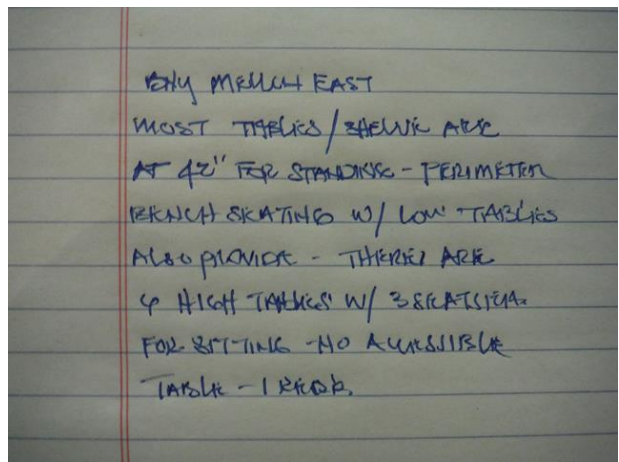 MOST TABLES / SHELVE ARE
AT 42" FOR STANDING - PERIMETER
BENCH SEATING W/ LOW TABLES
ALSO PROVIDE - THERE ARE
HIGH TABLES W/ 3 SEATS EA.
FOR SITTING - NO ACCESSIBLE
TABLE - 1 REQ'D.